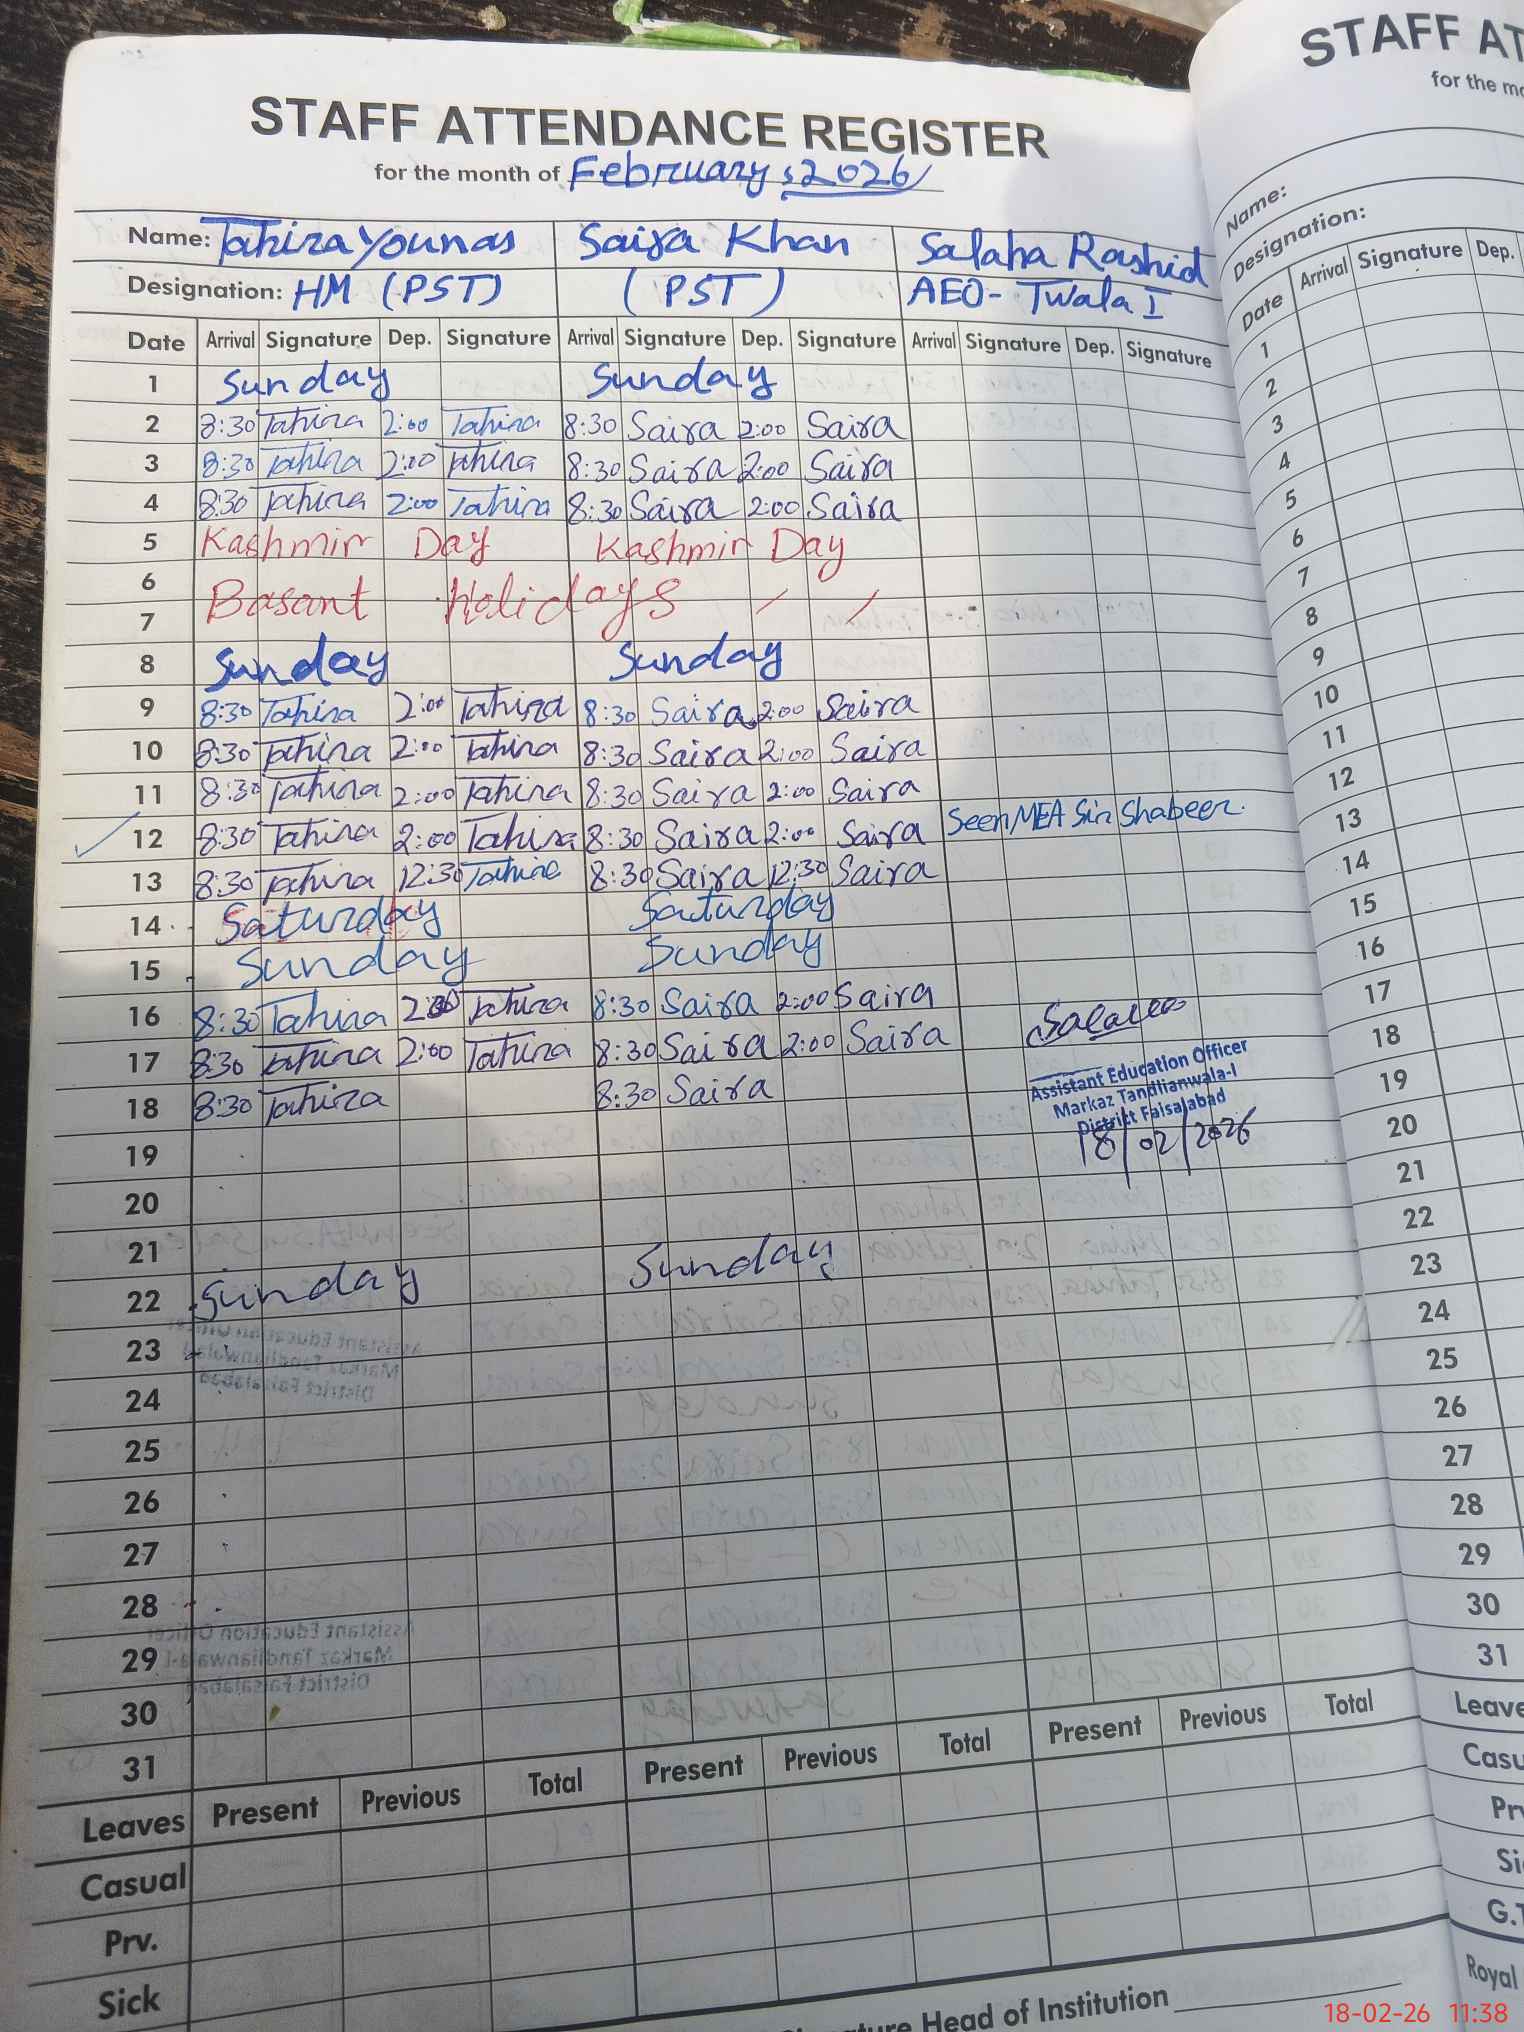 STAFF ATTENDANCE REGISTER
for the month of February, 2026
Name: Tahira Younas Saira Khan Salaha Rashid
Designation: HM (PST) (PST) AEO- Twala I
Date Arrival Signature Dep. Signature Arrival Signature Dep. Signature Arrival Signature Dep. Signature
1 Sunday Sunday
2 8:30 Tahira 2:00 Tahira 8:30 Saira 2:00 Saira
3 8:30 Tahira 2:00 Tahira 8:30 Saira 2:00 Saira
4 8:30 Tahira 2:00 Tahira 8:30 Saira 2:00 Saira
5 Kashmir Day Kashmir Day
6
Basant Holidays
7
8 Sunday Sunday
9 8:30 Tahira 2:00 Tahira 8:30 Saira 2:00 Saira
10 8:30 Tahira 2:00 Tahira 8:30 Saira 2:00 Saira
11 8:30 Tahira 2:00 Tahira 8:30 Saira 2:00 Saira
12 8:30 Tahira 2:00 Tahira 8:30 Saira 2:00 Saira Seen MEA Sir Shabeer.
13 8:30 Tahira 12:30 Tahira 8:30 Saira 12:30 Saira
14 Saturday Saturday
15 Sunday Sunday
16 8:30 Tahira Tahira 8:30 Saira 2:00 Saira
17 8:30 Tahira 2:00 Tahira 8:30 Saira 2:00 Saira
18 8:30 Tahira 8:30 Saira
Assistant Education Officer
Markaz Tandlianwala-I
District Faisalabad
18/02/2026
19
20
21
22 Sunday Sunday
23
24
25
26
27
28
29
30
31
Leaves Present Previous Total Present Previous Total Present Previous Total
Casual
Prv.
Sick
Head of Institution
STAFF AT
for the mo
Name:
Designation:
Date Arrival Signature Dep.
1
2
3
4
5
6
7
8
9
10
11
12
13
14
15
16
17
18
19
20
21
22
23
24
25
26
27
28
29
30
31
Leave
Casu
Pr
Si
G.T
Royal
18-02-26 11:38